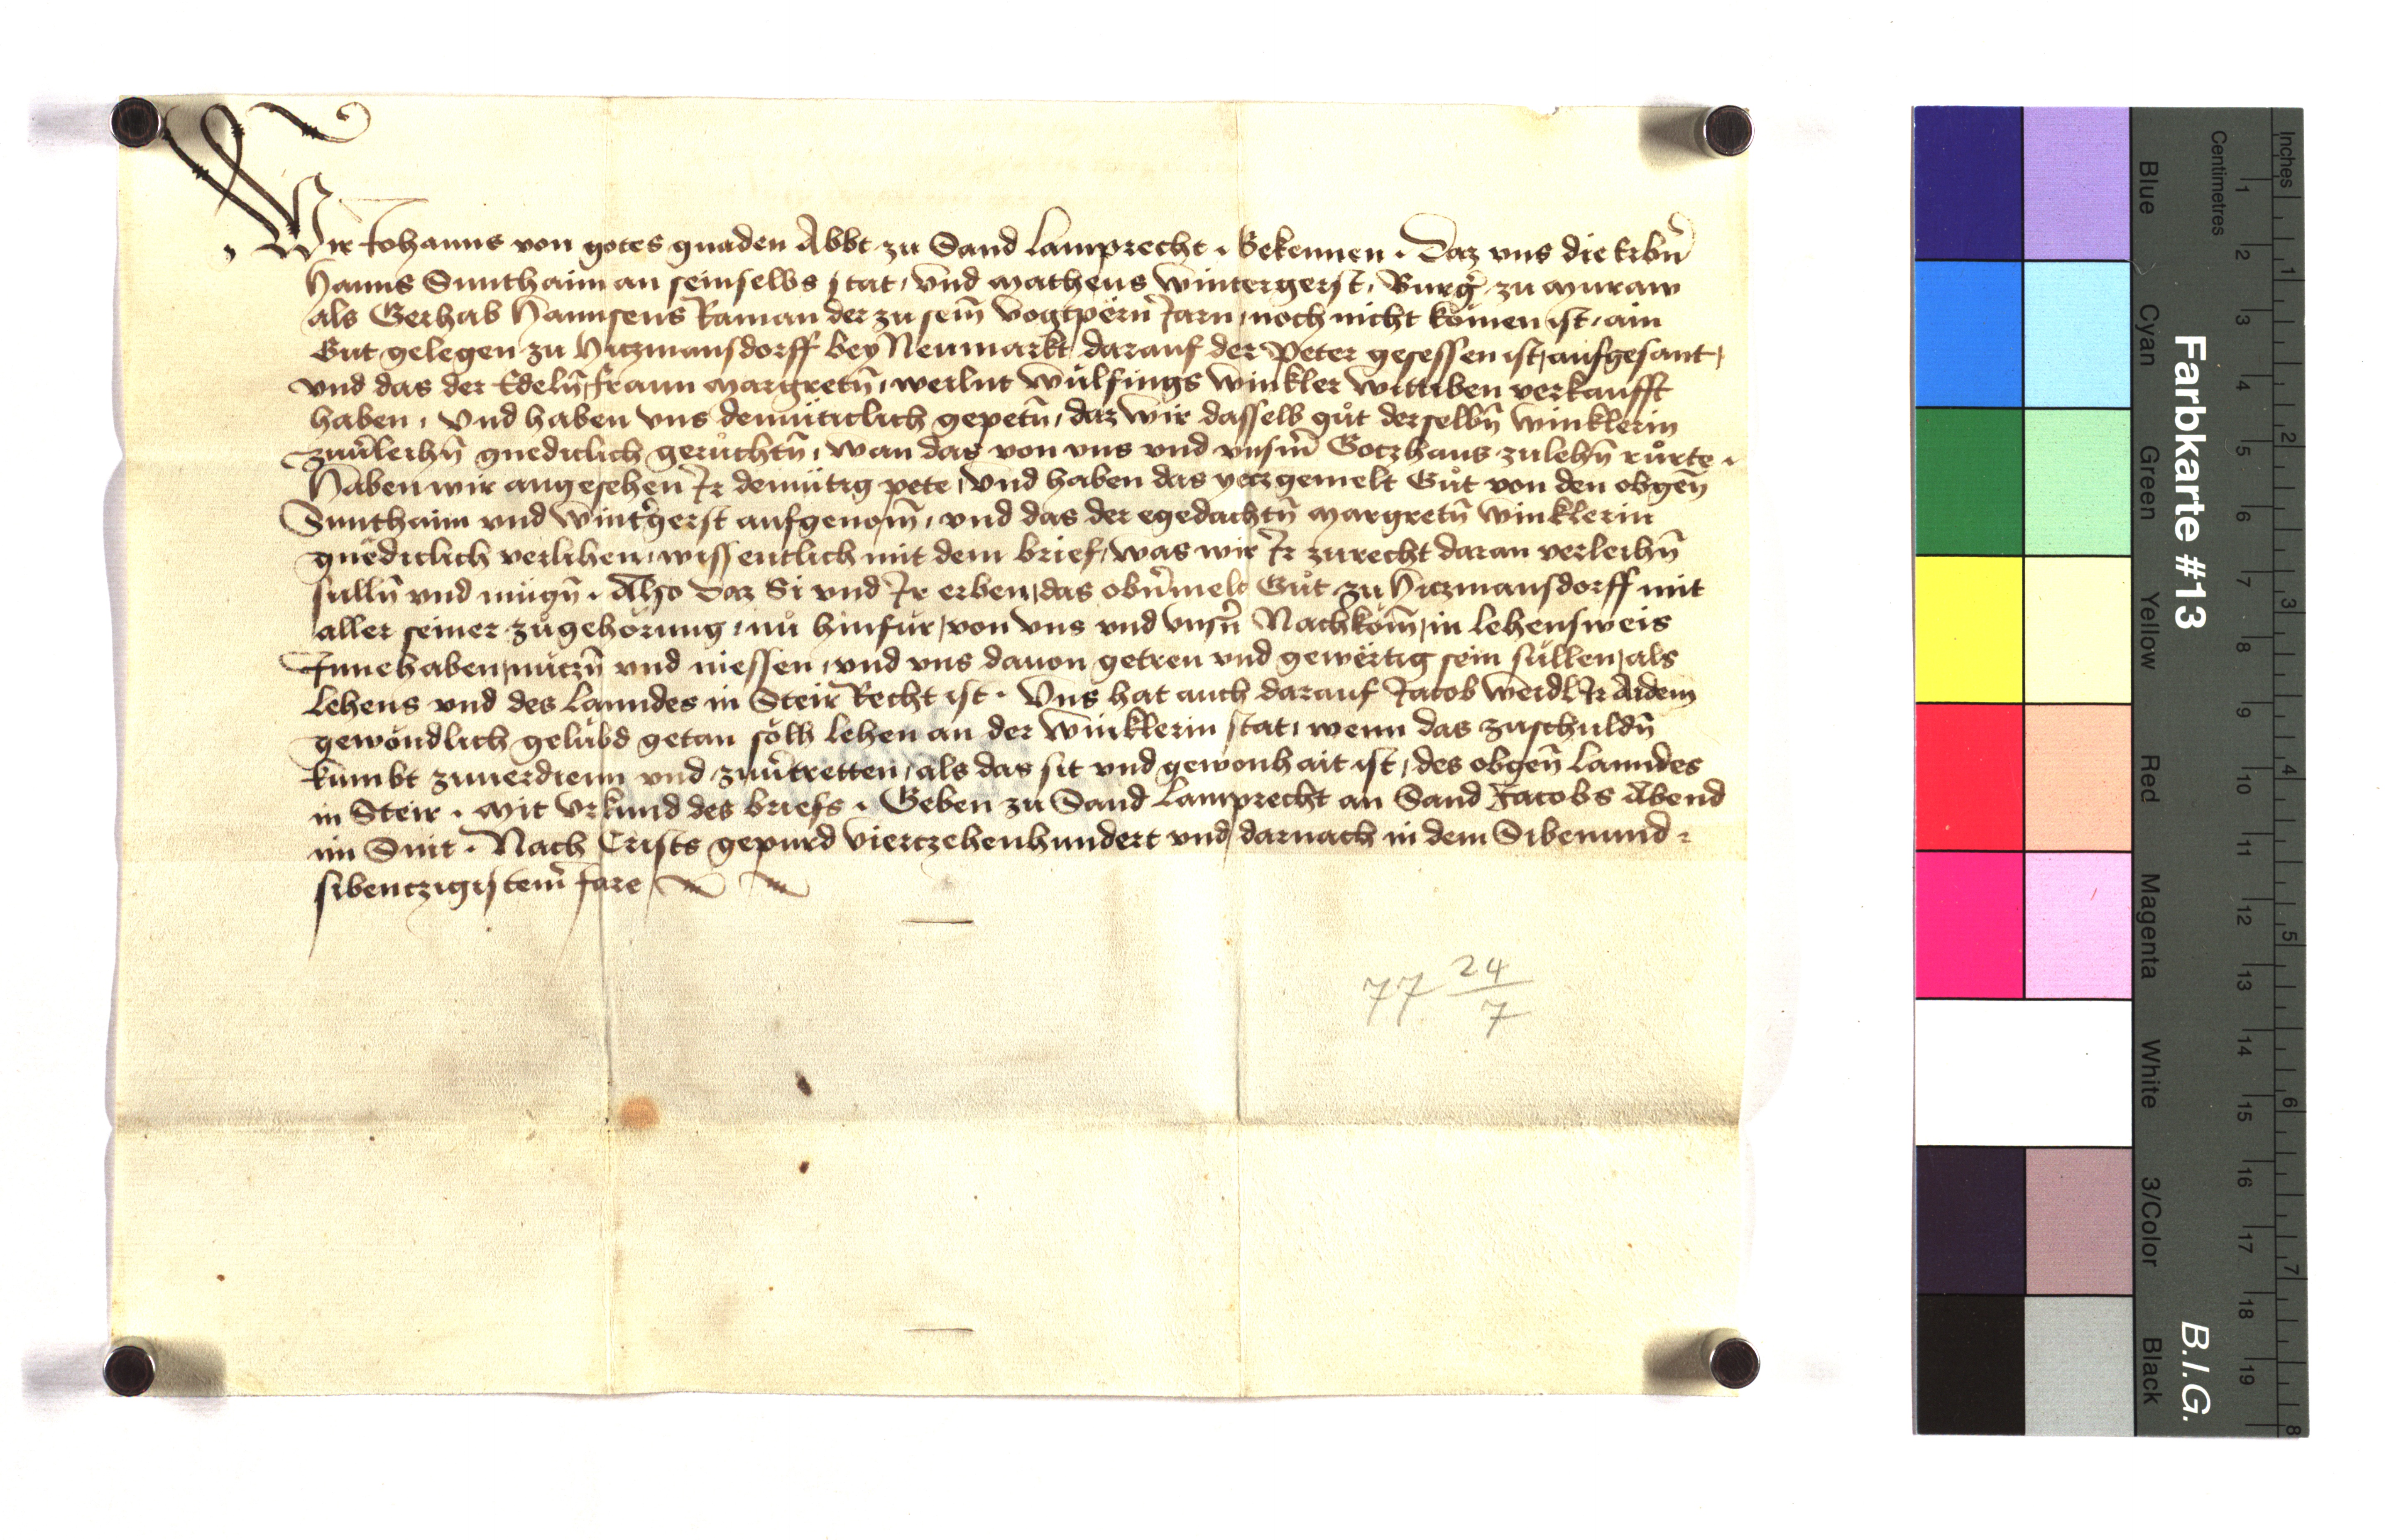 Wir Johanns von gotes gnaden Abbt zu Sand Lamprecht . Bekennen . Daz vns die Erbn̄
Hanns Sunthaim an seinselbs stat, vnd Matheus Wintergerst, Burḡ zu Muraw
als Gerhab Hannsens Raman der zu sem̄ vogtpern̄ Jarn, noch nicht kömen ist, ain
Gut gelegen zu Hitzmansdorff bey Neumarkt darauf der Peter gesessen ist, aufgesant,
vnd das der Edeln̄ frawn Margretn̄, weilnt Wülfings Winkler wittiben verkaufft
haben, Vnd haben vns demüticlich gepetn̄, daz wir dasselb gůt derselbn̄ Winklerin
zuu̕leihn̄ gnediclich gerůchtn̄, wan das von vns vnd vnsm̄ Gotzhaus zulehn̄ růrte .
Haben wir angesehen Ir demütig pete, Vnd haben das yetzgemelt Gůt von den obgen̄
Sunthaim vnd Wint̕gerst aufgenom̄, vnd das der egedachtn̄ Margretn̄ Winklerin
gnëdiclich verlihen, wissentlich mit dem brief, was wir Ir zurecht daran verleihn̄
sulln̄ vnd mügn̄ . Also daz Si vnd Ir erben, das obu̕melt Gůt zu Hitzmansdorff mit
aller seiner zůgehörung, nů hinfür, von vns vnd vnsn̄ Nachköm̄, in lehensweis
Innehaben, nützn̄ vnd niessen, vnd vns dauon getreu vnd gewërtig sein süllen, als
Lehens vnd des Lanndes in Steir Recht ist . Vns hat auch darauf Jacob Weidl Ir Aidem
gewöndlich gelübd getan sölh lehen an der Winklerin stat, wenn das zuschuldn̄
kumbt zuuerdienn vnd zuu̕tretten, als das sit vnd gewonhait ist, des obgen̄ Lanndes
in Steir . Mit vrkund des briefs . Geben zu Sand Lamprecht an Sand Jacobs Abend
im Snit . Nach Crists gepurd vierczehenhundert vnd darnach in dem Sibenund-
sibenczigistem̄ Jare
77 24/7
Farbkarte #13
B.I.G.
Inches
1 2 3 4 5 6 7 8
Centimetres
1 2 3 4 5 6 7 8 9 10 11 12 13 14 15 16 17 18 19
Blue
Cyan
Green
Yellow
Red
Magenta
White
3/Color
Black